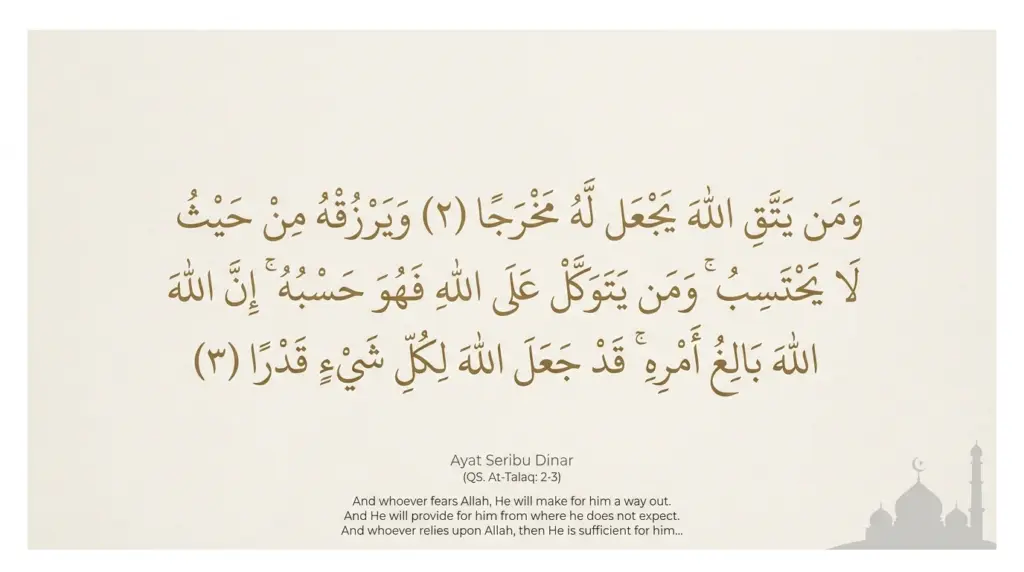 وَمَن يَتَّقِ اللهَ يَجْعَل لَّهُ مَخْرَجًا (٢) وَيَرْزُقْهُ مِنْ حَيْثُ
لَا يَحْتَسِبُ ۚ وَمَن يَتَوَكَّلْ عَلَى اللهِ فَهُوَ حَسْبُهُ ۚ إِنَّ اللهَ
اللهَ بَالِغُ أَمْرِهِ ۚ قَدْ جَعَلَ اللهَ لِكُلِّ شَيْءٍ قَدْرًا (٣)
Ayat Seribu Dinar
(QS. At-Talaq: 2-3)
And whoever fears Allah, He will make for him a way out.
And He will provide for him from where he does not expect.
And whoever relies upon Allah, then He is sufficient for him...